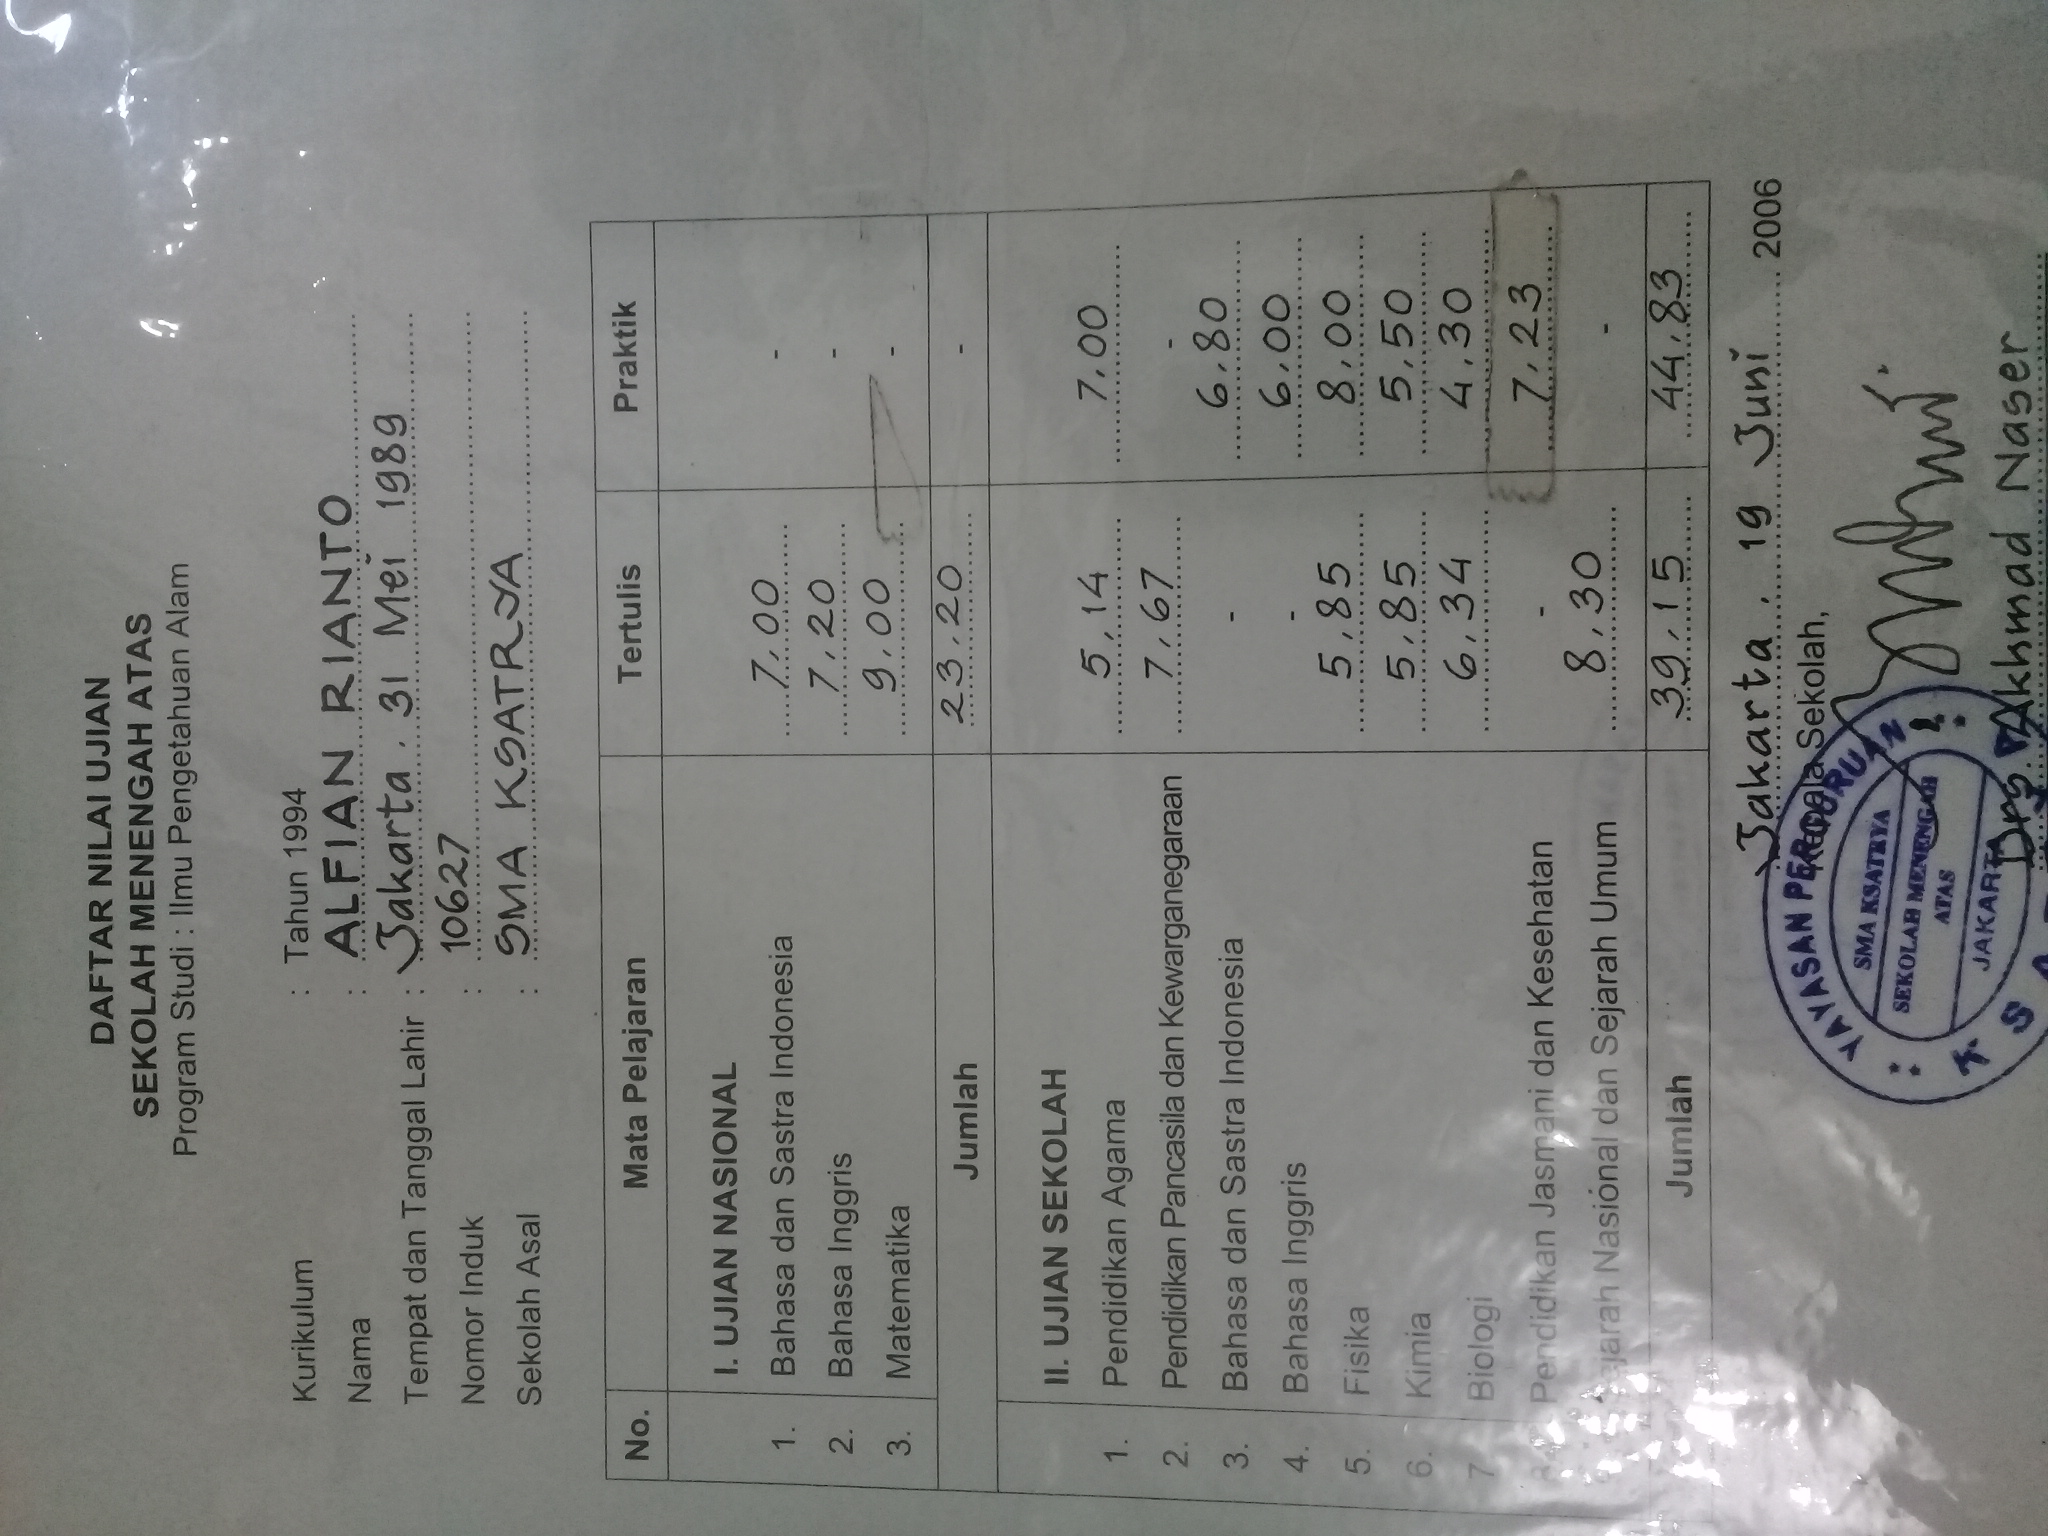 DAFTAR NILAI UJIAN
SEKOLAH MENENGAH ATAS
Program Studi : Ilmu Pengetahuan Alam
Kurikulum : Tahun 1994
Nama : ALFIAN RIANTO
Tempat dan Tanggal Lahir : Jakarta. 31 Mei 1989
Nomor Induk : 10627
Sekolah Asal : SMA KSATRYA
No. Mata Pelajaran Tertulis Praktik
I. UJIAN NASIONAL
1. Bahasa dan Sastra Indonesia 7,00 -
2. Bahasa Inggris 7,20 -
3. Matematika 9,00 -
Jumlah 23,20 -
II. UJIAN SEKOLAH
1. Pendidikan Agama 5,14 7,00
2. Pendidikan Pancasila dan Kewarganegaraan 7,67 -
3. Bahasa dan Sastra Indonesia - 6,80
4. Bahasa Inggris - 6,00
5. Fisika 5,85 8,00
6. Kimia 5,85 5,50
7 Biologi 6,34 4,30
Pendidikan Jasmani dan Kesehatan - 7,23
Sejarah Nasional dan Sejarah Umum 8,30 -
Jumlah 39,15 44,83
Jakarta. 19 Juni 2006
Kepala Sekolah,
YAYASAN PERGURUAN
SMA KSATRYA
SEKOLAH MENENGAH
ATAS
JAKARTA
Drs. Akhmad Naser